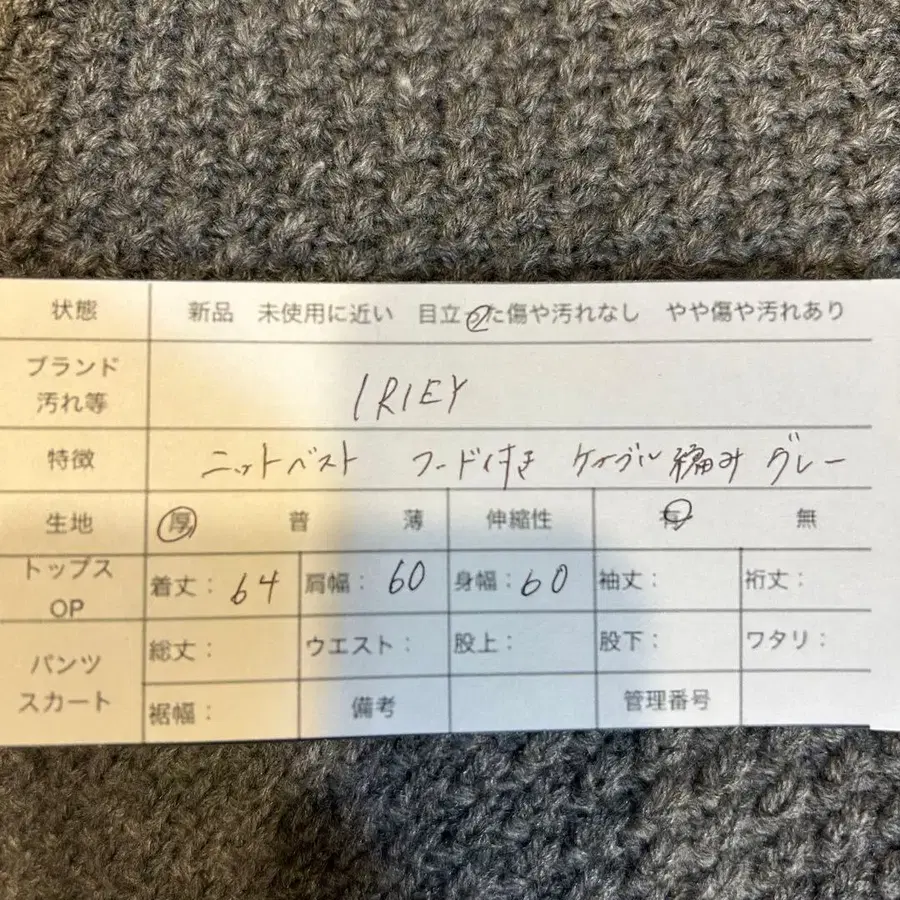 状態 新品 未使用に近い 目立った傷や汚れなし やや傷や汚れあり
ブランド
汚れ等 IRIEY
特徴 ニットベスト フード付き ケーブル編み グレー
生地 厚 普 薄 伸縮性 有 無
トップス
OP 着丈: 64 肩幅: 60 身幅: 60 袖丈: 裄丈:
パンツ
スカート 総丈: ウエスト: 股上: 股下: ワタリ:
裾幅: 備考 管理番号